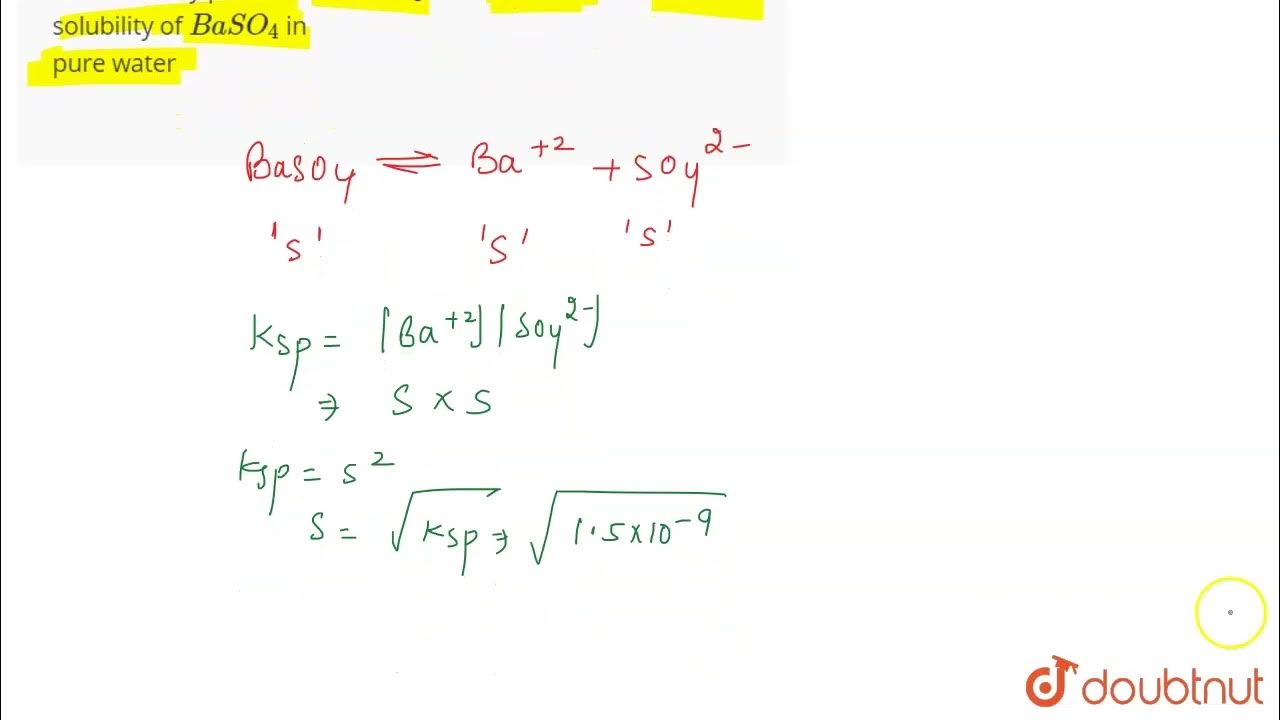 solubility of BaSO4 in
pure water
BaSO4 ⇌ Ba+2 + SO4 2-
's' 's' 's'
Ksp = [Ba+2] [SO4 2-]
⇒ S × S
Ksp = s2
S = √Ksp ⇒ √1.5×10-9
doubtnut